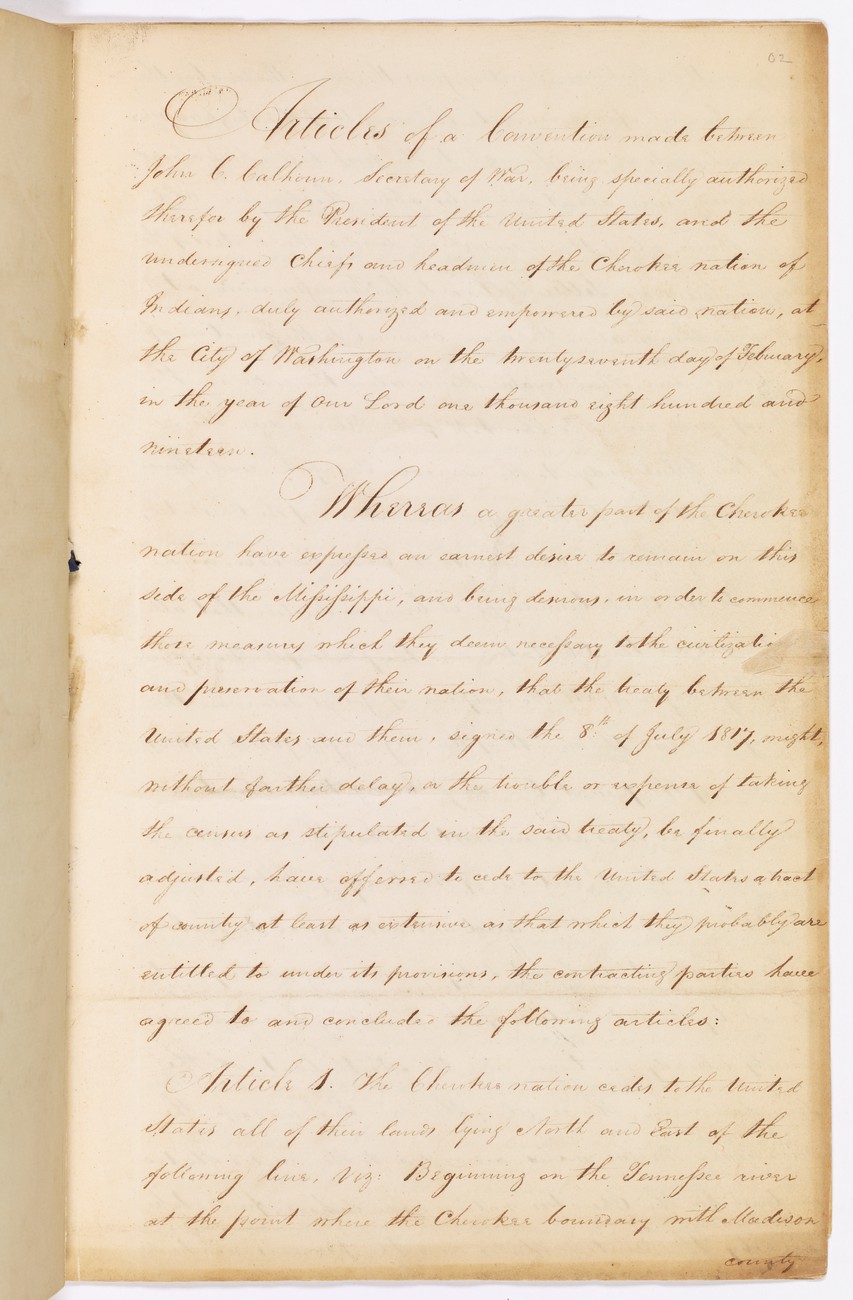 02
Articles of a Convention made between
John C. Calhoun, Secretary of War, being specially authorized
therefor by the President of the United States, and the
undersigned Chiefs and headmen of the Cherokee nation of
Indians, duly authorized and empowered by said nation, at
the City of Washington on the twenty seventh day of February,
in the year of Our Lord one thousand eight hundred and
nineteen.
Whereas a greater part of the Cherokee
nation have expressed an earnest desire to remain on this
side of the Mississippi, and being desirous, in order to commence
those measures which they deem necessary to the civilizatio
and preservation of their nation, that the treaty between the
United States and them, signed the 8th of July 1817, might,
without farther delay, or the trouble or expense of taking
the census as stipulated in the said treaty, be finally
adjusted, have offerred to cede to the United States a tract
of country at least as extensive as that which they probably are
entitled to under its provisions, the contracting parties have
agreed to and concluded the following articles:
Article 1. The Cherokee nation cedes to the United
States all of their lands lying North and East of the
following line, Viz: Beginning on the Tennessee river
at the point where the Cherokee boundary with Madison
county